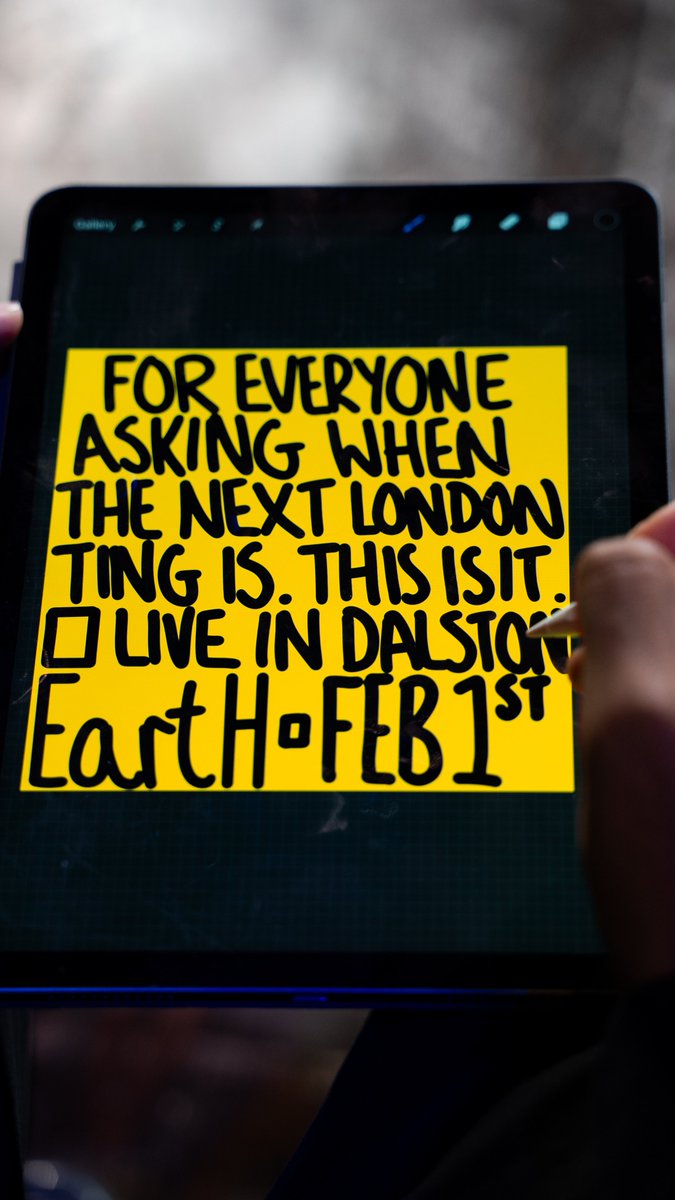 Gallery
FOR EVERYONE
ASKING WHEN
THE NEXT LONDON
TING IS. THIS IS IT.
□ LIVE IN DALSTON
EartH▫FEB 1ST